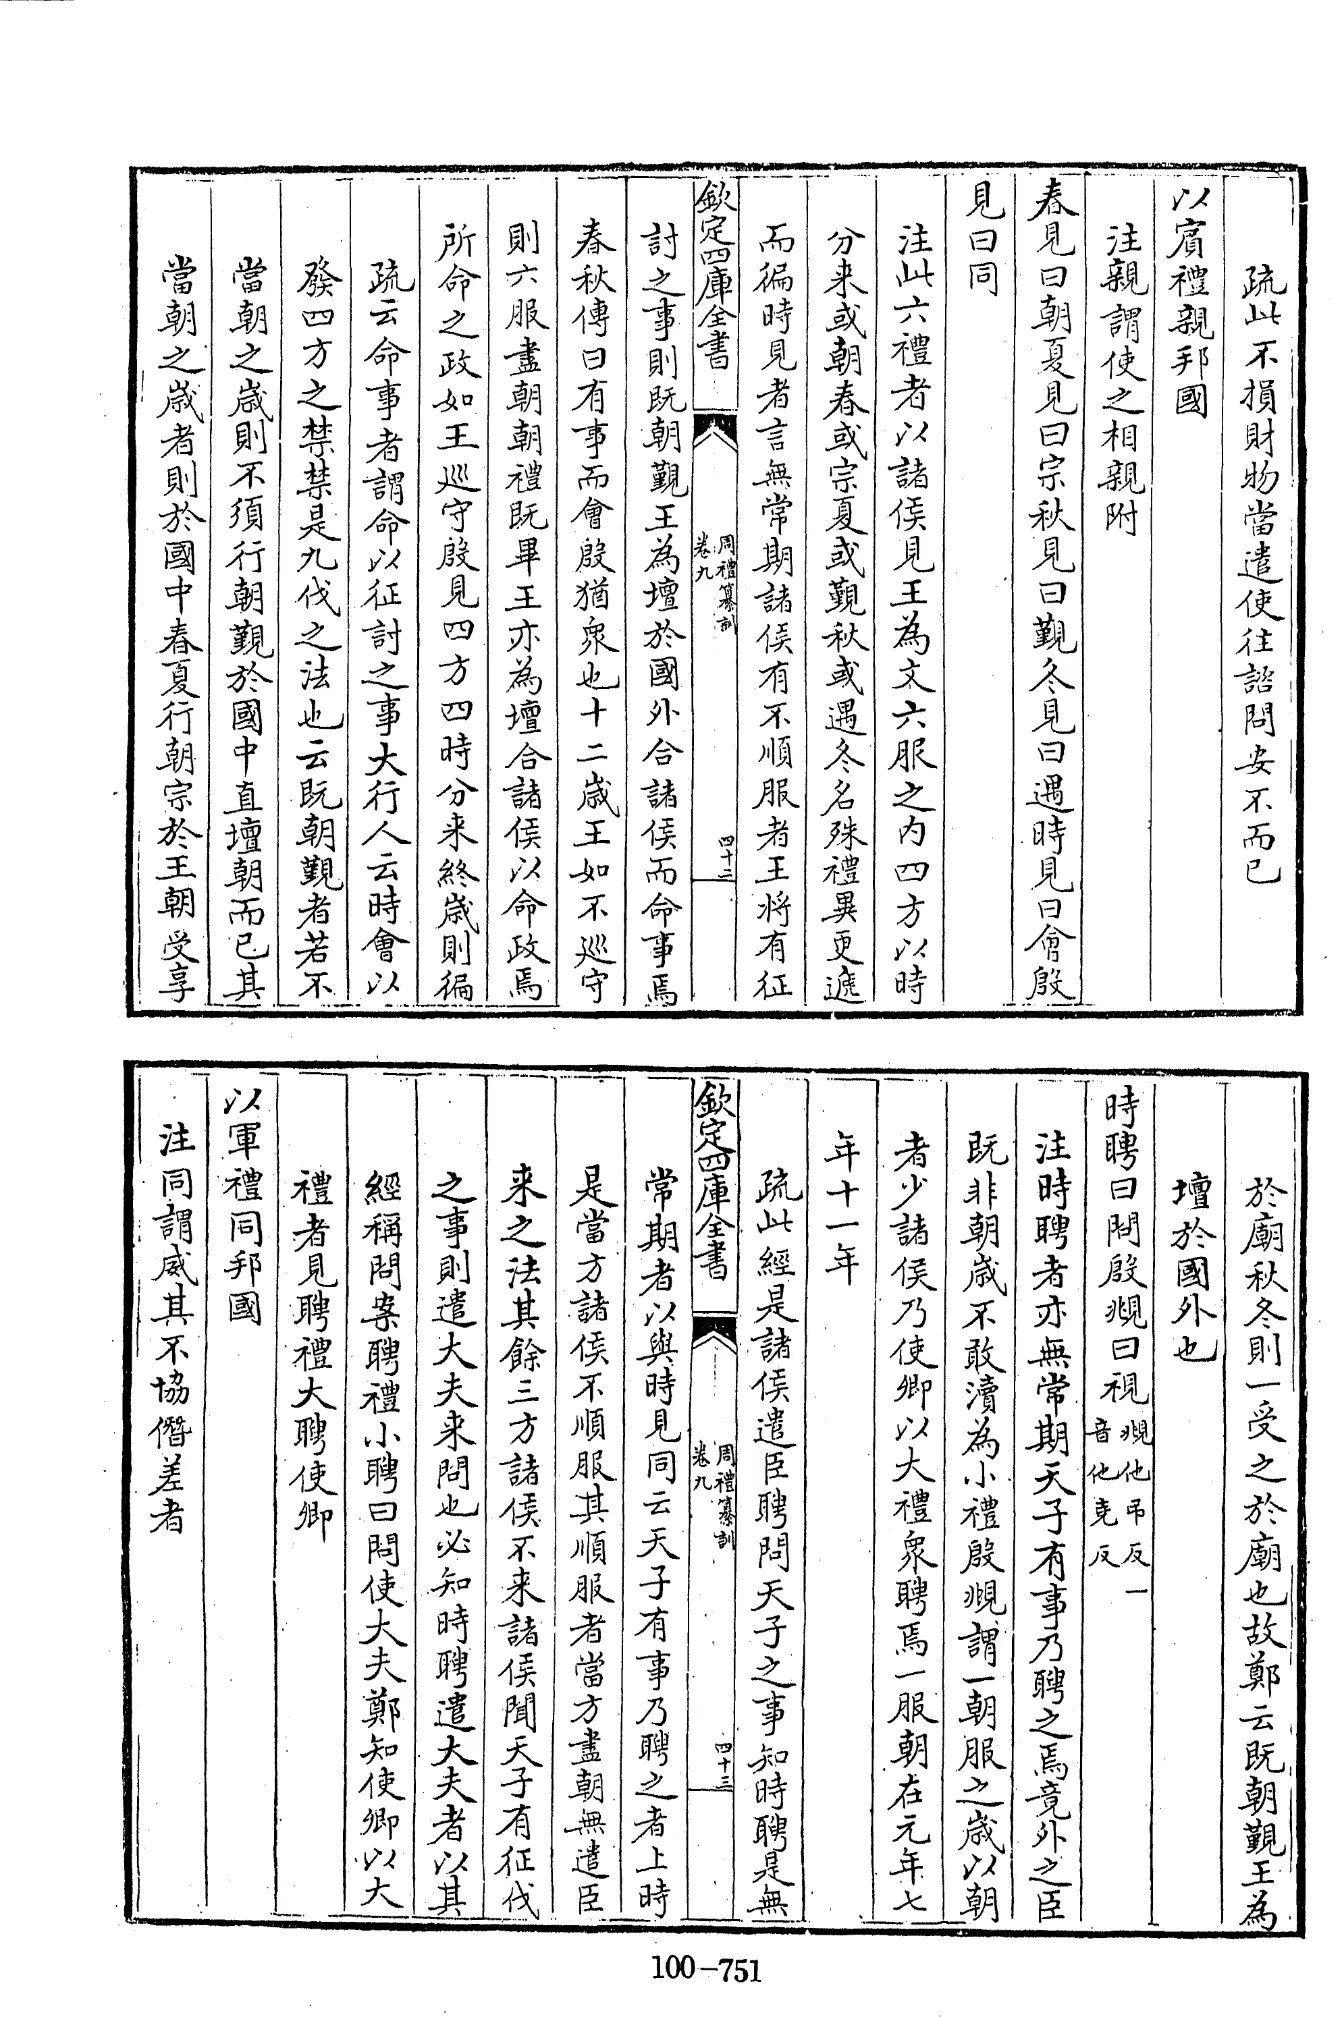 疏此不損財物當遣使往諮問安不而已
以賓禮親邦國
注親謂使之相親附
春見曰朝夏見曰宗秋見曰覲冬見曰遇時見曰會殷
見曰同
注此六禮者以諸侯見王為文六服之内四方以時
分来或朝春或宗夏或覲秋或遇冬名殊禮異更遞
而徧時見者言無常期諸侯有不順服者王將有征
欽定四庫全書
周禮纂訓
卷九
四十二
討之事則既朝覲王為壇於國外合諸侯而命事焉
春秋傳曰有事而會殷猶衆也十二歲王如不巡守
則六服盡朝朝禮既畢王亦為壇合諸侯以命政焉
所命之政如王巡守殷見四方四時分来終歲則徧
疏云命事者謂命以征討之事大行人云時會以
發四方之禁禁是九伐之法也云既朝覲者若不
當朝之歲則不須行朝覲於國中直壇朝而已其
當朝之歲者則於國中春夏行朝宗於王朝受享
於廟秋冬則一受之於廟也故鄭云既朝覲王為
壇於國外也
時聘曰問殷覜曰視覜他弔反一音他堯反
注時聘者亦無常期天子有事乃聘之焉竟外之臣
既非朝歲不敢瀆為小禮殷覜謂一朝服之歲以朝
者少諸侯乃使卿以大禮衆聘焉一服朝在元年七
年十一年
疏此經是諸侯遣臣聘問天子之事知時聘是無
欽定四庫全書
周禮纂訓
卷九
四十三
常期者以與時見同云天子有事乃聘之者上時
是當方諸侯不順服其順服者當方盡朝無遣臣
来之法其餘三方諸侯不来諸侯聞天子有征伐
之事則遣大夫来問也必知時聘遣大夫者以其
經稱問案聘禮小聘曰問使大夫鄭知使卿以大
禮者見聘禮大聘使卿
以軍禮同邦國
注同謂威其不協僭差者
100-751